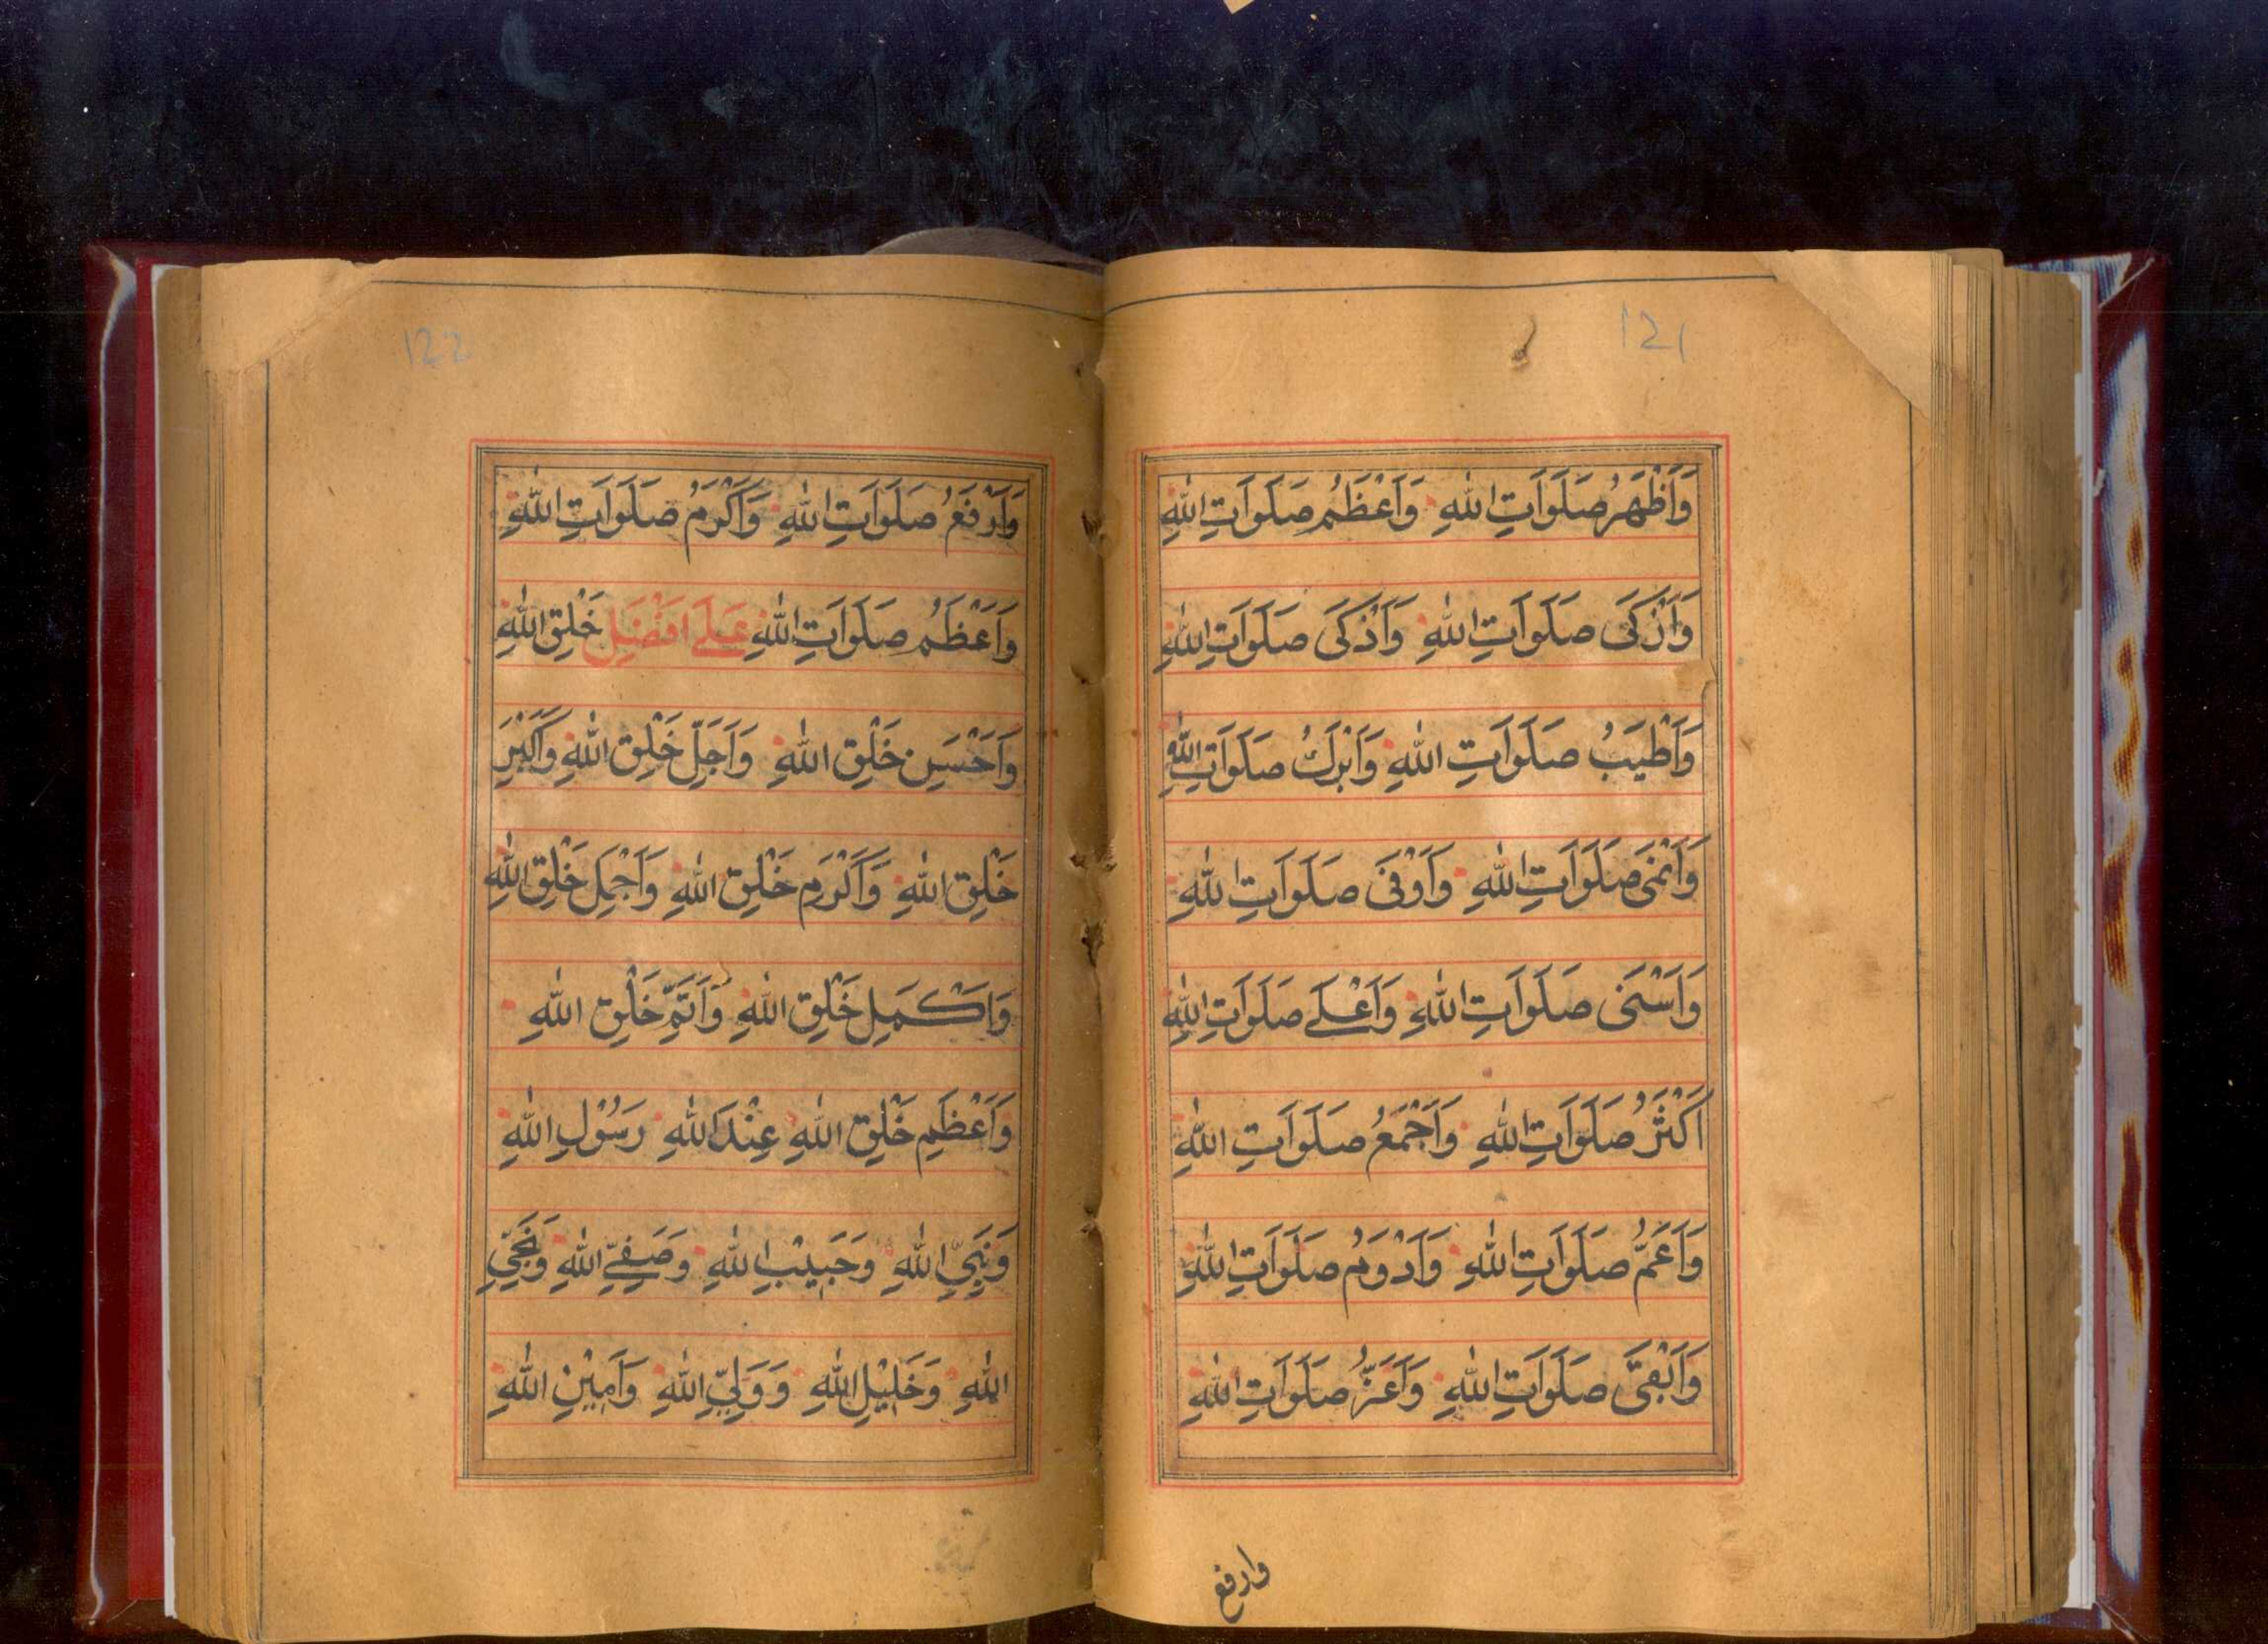 121
وَاَظْهَرُ صَلَوَاتِ اللهِ وَاَعْظَمُ صَلَوَاتِ اللهِ
وَاَزْكَى صَلَوَاتِ اللهِ وَاَذْكَى صَلَوَاتِ اللهِ
وَاَطْيَبُ صَلَوَاتِ اللهِ وَاَبْرَكُ صَلَوَاتِ اللهِ
وَاَنْمَى صَلَوَاتِ اللهِ وَاَوْفَى صَلَوَاتِ اللهِ
وَاَسْنَى صَلَوَاتِ اللهِ وَاَعْلَے صَلَوَاتِ اللهِ
اَكْثَرُ صَلَوَاتِ اللهِ وَاَجْمَعُ صَلَوَاتِ اللهِ
وَاَعَمُّ صَلَوَاتِ اللهِ وَاَدْوَمُ صَلَوَاتِ اللهِ
وَاَبْقَى صَلَوَاتِ اللهِ وَاَعَزُّ صَلَوَاتِ اللهِ
وارفع
122
وَاَرْفَعُ صَلَوَاتِ اللهِ وَاَكْرَمُ صَلَوَاتِ اللهِ
وَاَعْظَمُ صَلَوَاتِ اللهِ عَلَے اَفْضَلِ خَلْقِ اللهِ
وَاَحْسَنِ خَلْقِ اللهِ وَاَجَلِّ خَلْقِ اللهِ وَاَكْبَرِ
خَلْقِ اللهِ وَاَكْرَمِ خَلْقِ اللهِ وَاَجْمَلِ خَلْقِ اللهِ
وَاَكْمَلِ خَلْقِ اللهِ وَاَتَمِّ خَلْقِ اللهِ
وَاَعْظَمِ خَلْقِ اللهِ عِنْدَ اللهِ رَسُوْلِ اللهِ
وَنَبِيِّ اللهِ وَحَبِيْبِ اللهِ وَصَفِيِّ اللهِ وَنَجِيِّ
اللهِ وَخَلِيْلِ اللهِ وَوَلِيِّ اللهِ وَاَمِيْنِ اللهِ